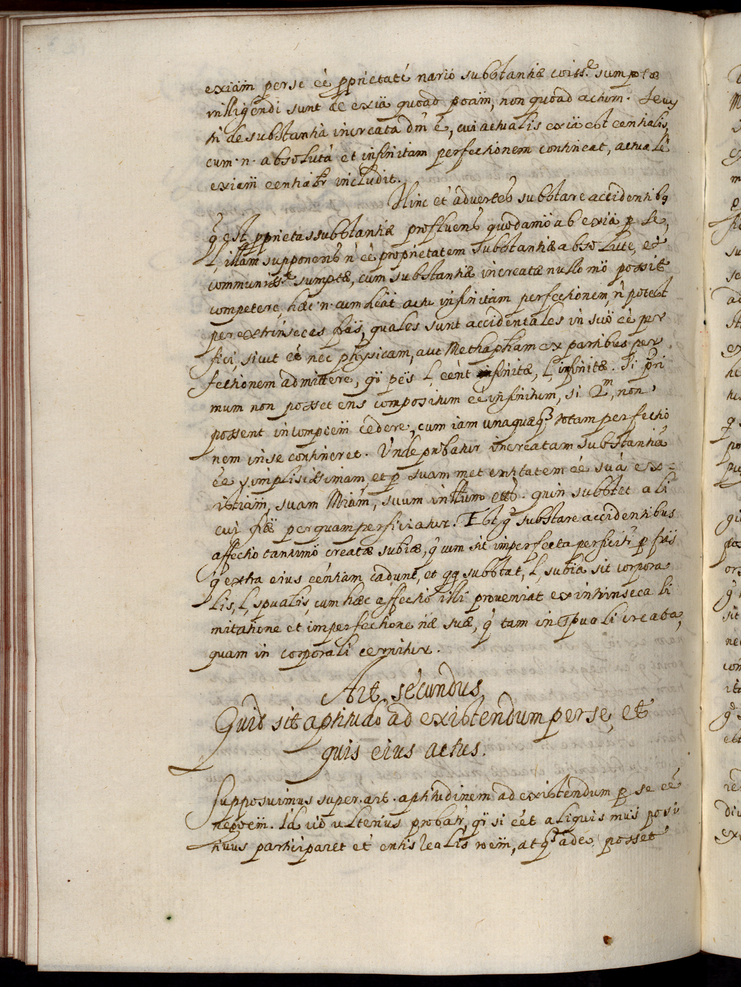 exiam perse eē pprietatē nariō substantiæ coiss.ᵉ sumptæ
intilligendi sunt de exiā quoad poām, non quoad actum. secus
n̄ de substantia increata dm̄ ē, cui actualis exiā est centialis,
cum .n. absolutā et infinitam perfectionem contineat, actualē
exiam eentialr̄ includit.
Hinc et advertes substare accidentibꝯ
qd̄ est pprietas substantiæ profluens quodamō ab exiā p se,
l, illam supponens n̄ ēē proprietatem substantiæ absolute, et
communiss.ᵉ sumptæ, cum substantiæ increatæ nullo mō possit
competere, hæc .n. cum hēat actu infinitam perfectionem, n̄ potest
per extrinsecas fās, quales sunt accidentales in suō ēē per
fici, sicut et nec physicam, aut Methapham ex partibus per
fectionem admittere, qā pēs l, eent infinitæ, l, finitæ. Si pri
mum non posset ens compositum ēē infinitum, si 2.ᵐ, non
possent in comp̄em cedere, cum iam unaquæqꝫ totam perfectio
nem in se contineret. Unde probatur increatam substantiā
ēē simplicissimam, et p suam met entitatem ēē suā exi=
stētiam, suam suum quin substet ali
cui fæ per quam perficiatur. Est gͥ substare accidentibus
affectio tantūmō creatæ subiæ, q̄ cum sit imperfecta perficitr̄ p fās
q̄ extra eius eentiam cadunt, et qꝫ substat, l, subia sit corpora
lis, l, spualis cum hæc affectio illi proveniat ex intrinseca li
mitatione et imperfectione næ suæ, q̄ tam in spuali creata,
quam in corporali cernitur.
Art. secundus,
Quid sit aptitudo ad existendum per se, et
quis eius actus.
Supposuimus super. art. aptitudinem ad existendum p se ēē
Id vō ulterius probatr̄, qā si eēt aliquis mus positi
tivus participaret et entis realis rōem, atqꝫ adeo posset